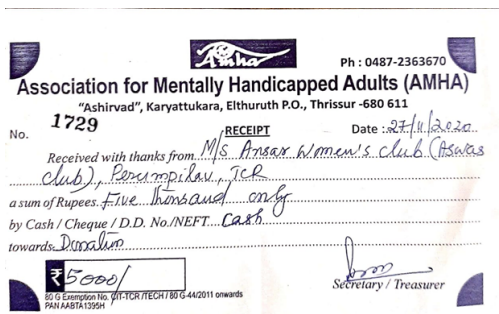 Amha
Ph : 0487-2363670
Association for Mentally Handicapped Adults (AMHA)
"Ashirvad", Karyattukara, Elthuruth P.O., Thrissur -680 611
No. 1729 RECEIPT Date : 27/11/2020
Received with thanks from M/S Ansar Women's Club (Aswas
Club), Perumpilav, TCR
a sum of Rupees. Five Thousand only
by Cash / Cheque / D.D. No./NEFT Cash
towards Donation
₹5000/
Secretary / Treasurer
80 G Exemption No. CIT-TCR /TECH / 80 G-44/2011 onwards
PAN AABTA1395H